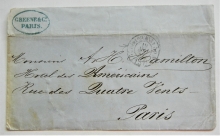 GREENE & Co.
PARIS.
Monsieur A. H. Hamilton
Hotel des Américain
Rue des Quatre Vents.
Paris